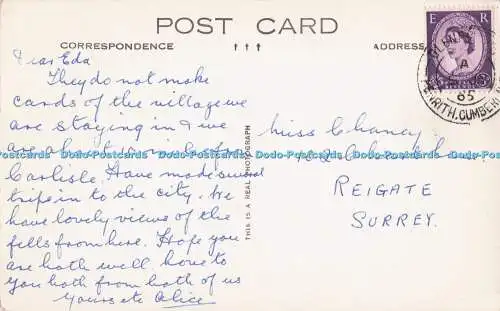 POST CARD
CORRESPONDENCE
ADDRESS
E R
PENRITH. CUMBERL
A
65
Dear Eda
They do not make
cards of the village we
are staying in & we
are about miles from
Carlisle. Have made several
trips in to the city. We
have lovely views of the
fells from here. Hope you
are both well. love to
you both from both of us
Yours etc Alice
THIS IS A REAL PHOTOGRAPH
Miss Chaney
REIGATE
SURREY.
Dodo-Postcards Dodo-Postcards Dodo-Postcards Dodo-Postcards Dodo-Postcards